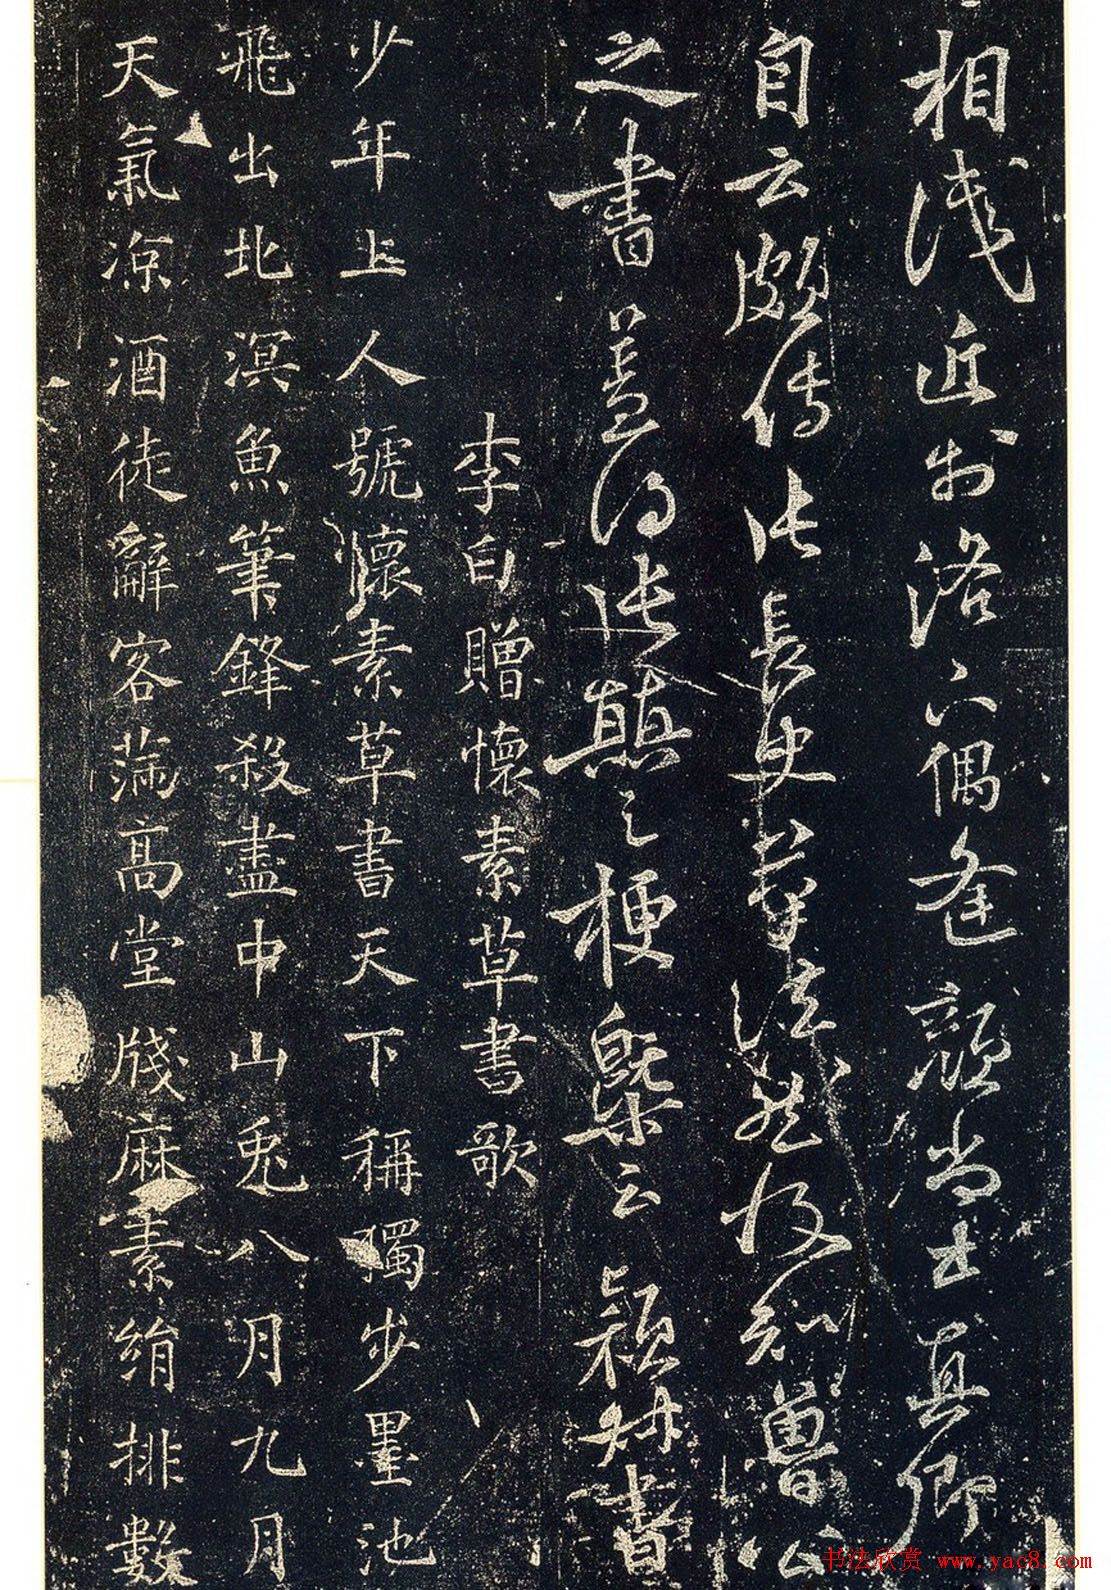 相識近於洛下偶逢顏尚書真卿
自云頗傳張長史筆法然後知魯公
之書蓋得張顛之梗槩云 穎叔書
李白贈懷素草書歌
少年上人號懷素草書天下稱獨步墨池
飛出北溟魚筆鋒殺盡中山兔八月九月
天氣涼酒徒辭客滿高堂牋麻素絹排數
书法欣赏 www.yac8.com